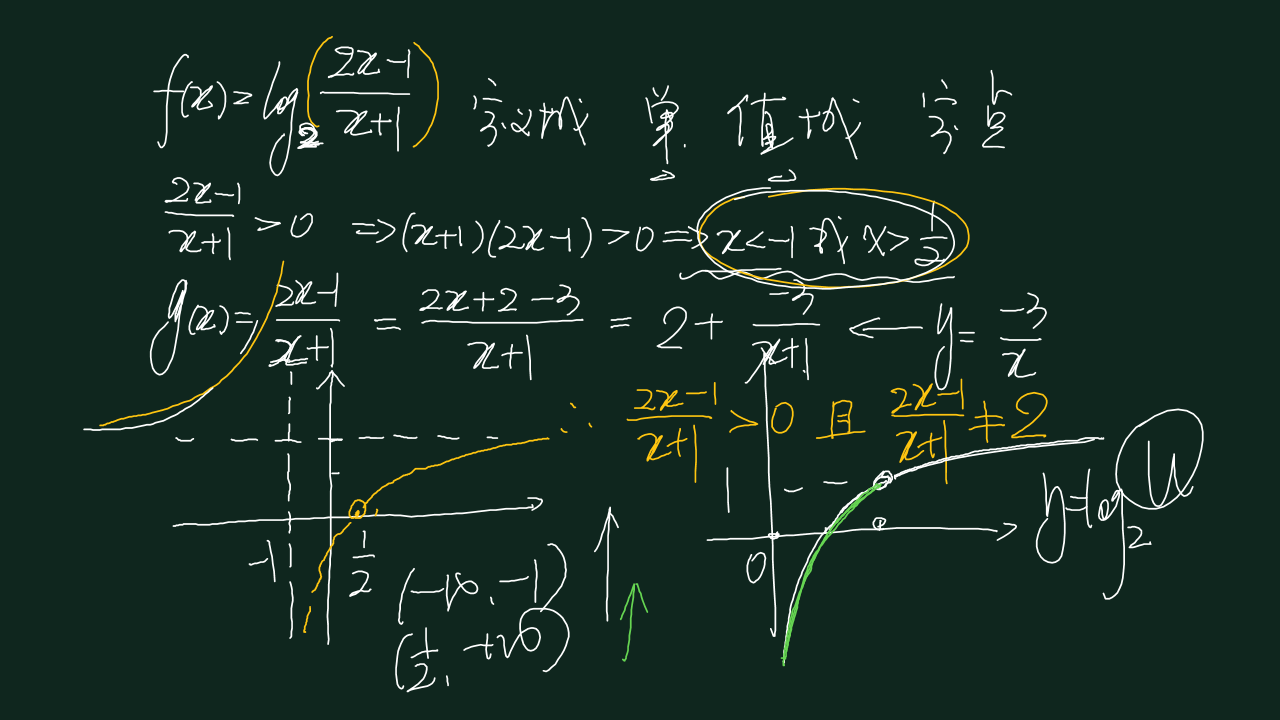 f(x)=log₂((2x-1)/(x+1)) 定义域 单 值域 定
(2x-1)/(x+1)>0 ⇒(x+1)(2x-1)>0⇒x<-1或x>1/2
g(x)=(2x-1)/(x+1)=(2x+2-3)/(x+1)=2+(-3)/(x+1)←y=(-3)/x
∴(2x-1)/(x+1)>0且(2x-1)/(x+1)≠2
1
y=log₂u
-1
1/2
0
(-∞,-1)
(1/2,+∞)